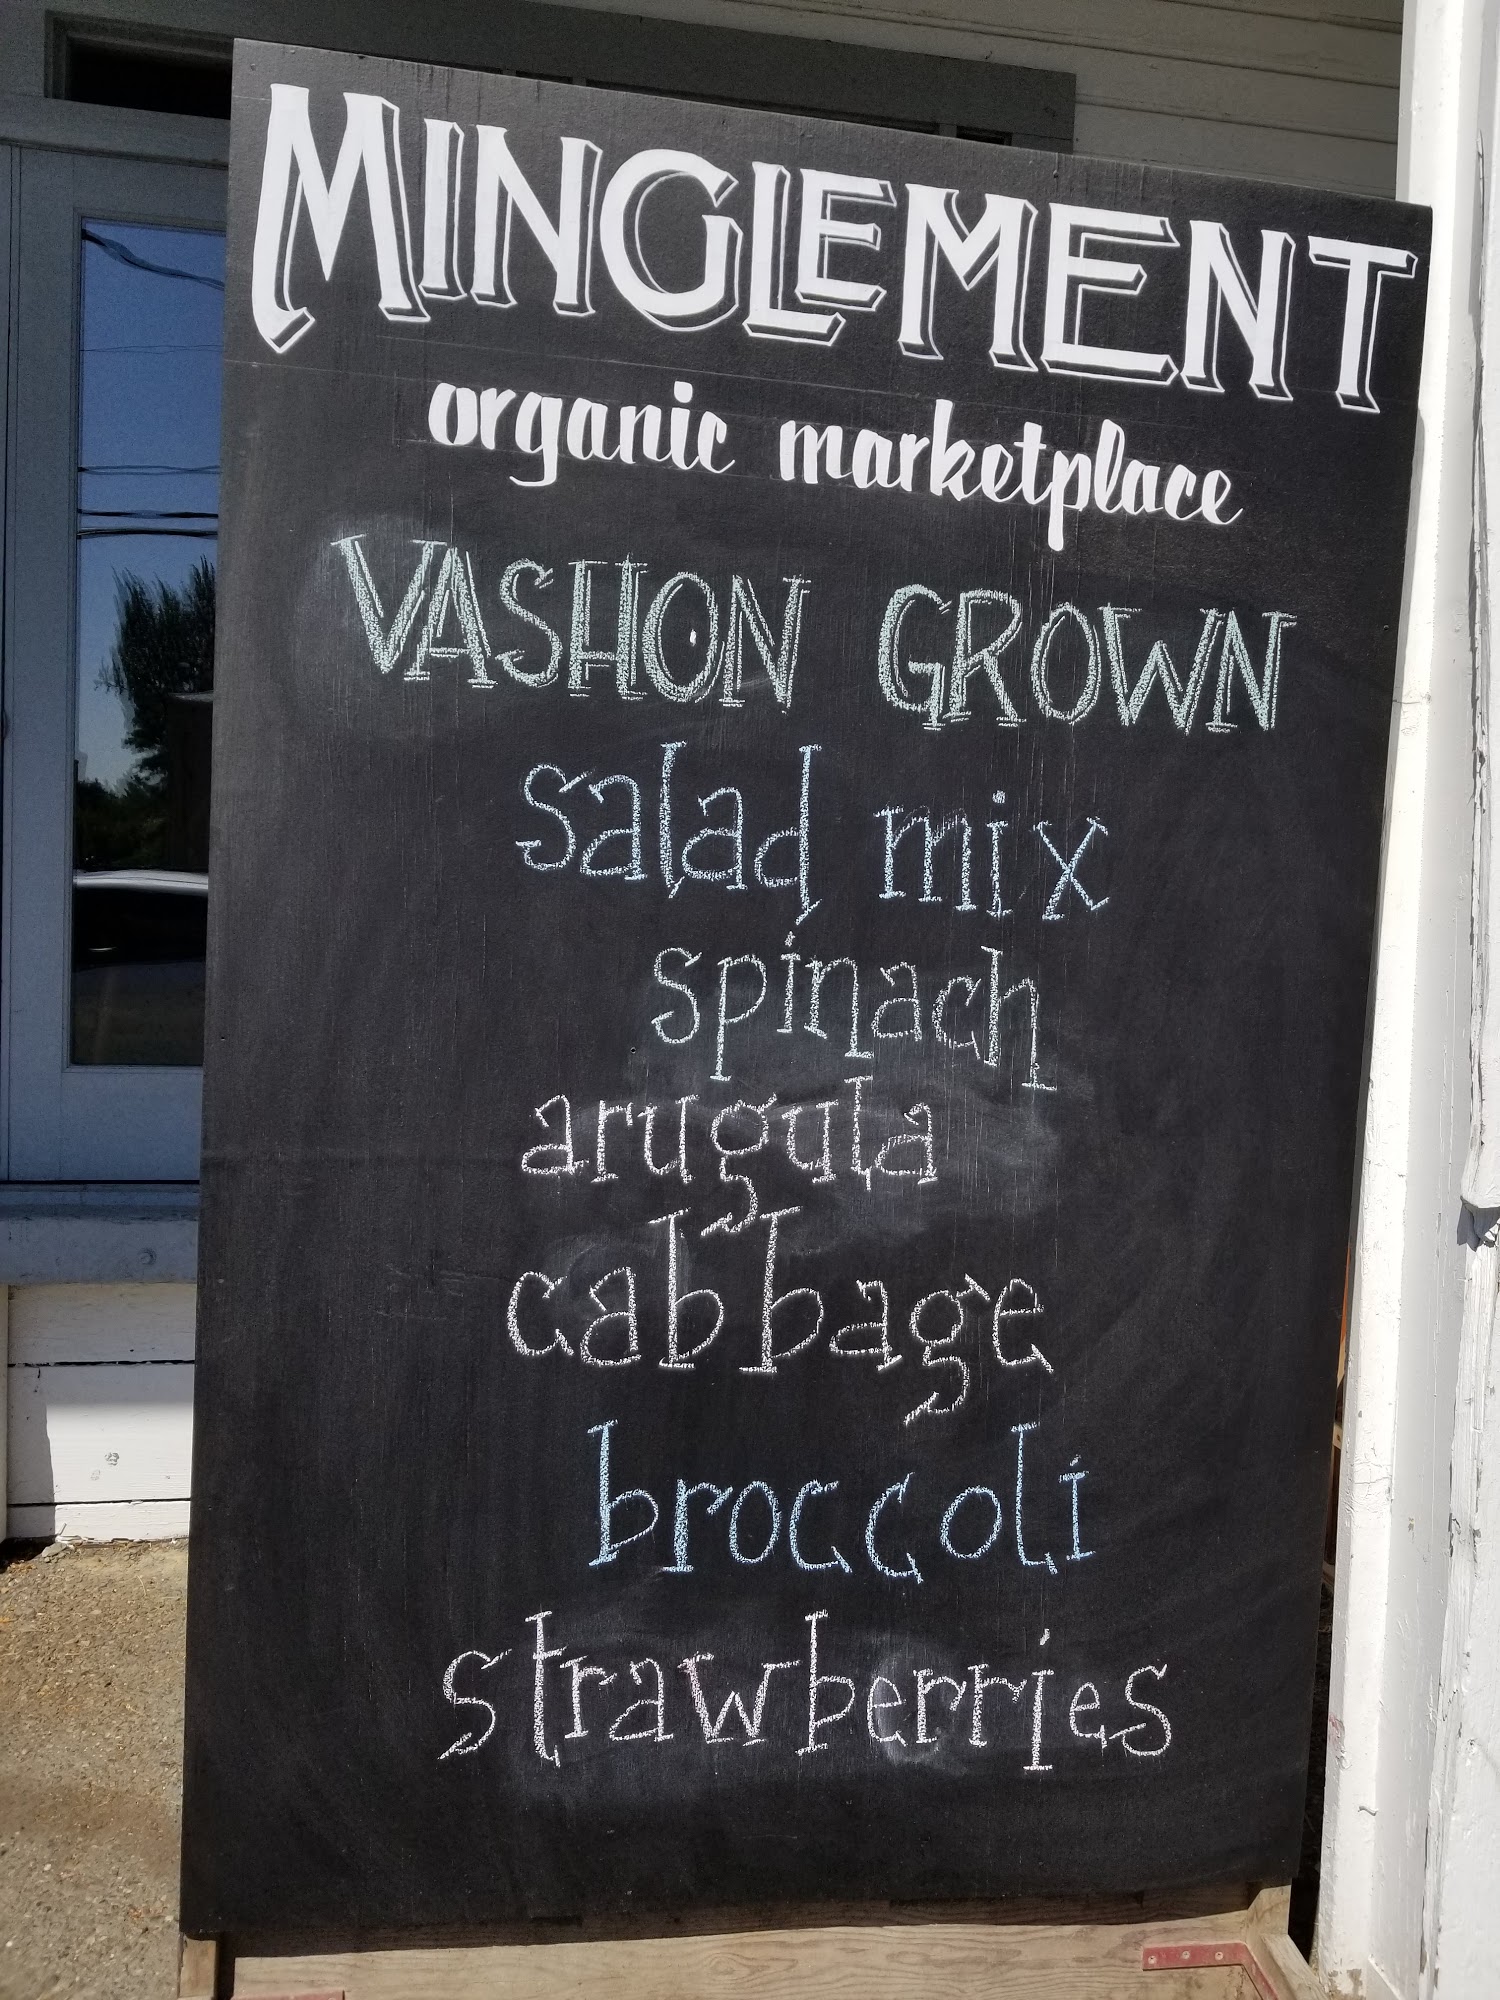 MINGLEMENT
organic marketplace
VASHON GROWN
salad mix
spinach
arugula
cabbage
broccoli
strawberries